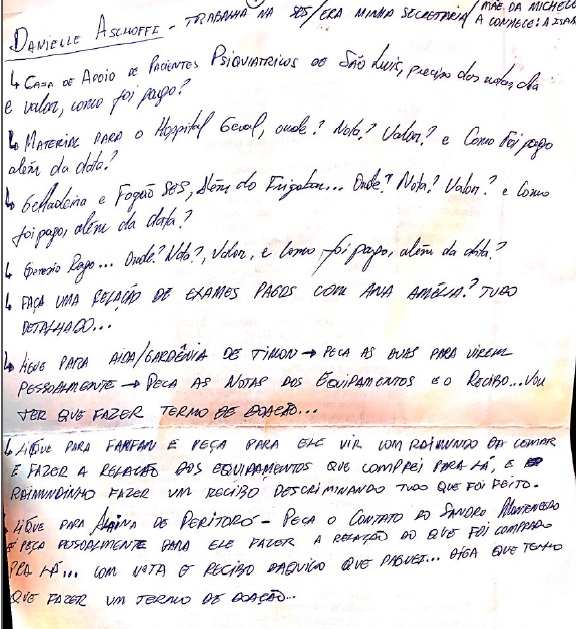 DANIELLE ASCHOFF - TRABALHA NA SES/ERA MINHA SECRETARIA/MÃE DA MICHELLE
A CONHECE:
↳ CASA DE APOIO DE PACIENTES PSIQUIATRICOS DE SÃO LUIS, preciso das notas, dia
e valor, como foi pago?
↳ MATERIAL PARA O Hospital Geral, onde? Nota? Valor? e Como Foi pago
além da data?
↳ Geladeira e Fogão SES, Além do Frigobar... Onde? Nota? Valor? e Como
foi pago, além da data?
↳ Pago... Onde? Nota?, Valor, e Como foi pago, além da data?
↳ FAÇA UMA RELAÇÃO DE EXAMES PAGOS COM ANA AMÉLIA? TUDO
DETALHADO...
↳ LIGUE PARA AIDA/GARDÊNIA DE TIMON → PEÇA AS DUAS PARA VIREM
PESSOALMENTE → PEÇA AS NOTAS DOS EQUIPAMENTOS E O RECIBO... VOU
TER QUE FAZER TERMO DE DOAÇÃO...
↳ LIGUE PARA FANFAN E PEÇA PARA ELE VIR COM RAIMUNDO DA
E FAZER A RELAÇÃO DOS EQUIPAMENTOS QUE COMPREI PARA LÁ, E
RAIMUNDINHO FAZER UM RECIBO DESCRIMINANDO TUDO QUE FOI FEITO.
LIGUE PARA DE PERITORÓ - PEÇA O CONTATO DO SANDRO MONTENEGRO
E PEÇA PESSOALMENTE PARA ELE FAZER A RELAÇÃO DO QUE FOI COMPRADO
PRA LÁ... COM NOTA E RECIBO DAQUILO QUE PAGUEI... DIGA QUE TENHO
QUE FAZER UM TERMO DE DOAÇÃO...